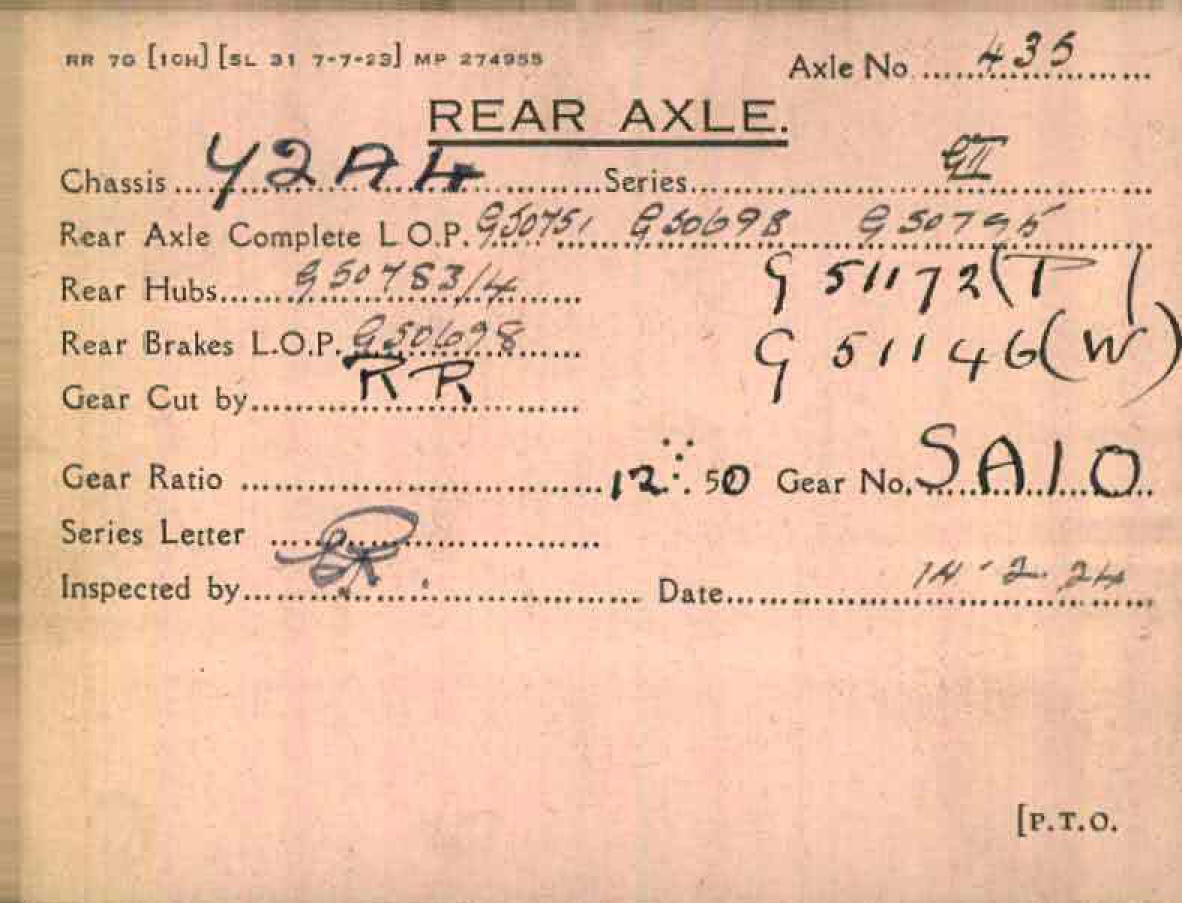 RR 70 [1CH] [SL 31 7-7-23] MP 274955
Axle No. 435
REAR AXLE.
Chassis 42A4 Series GII
Rear Axle Complete L.O.P. G50751 G50698 G50795
Rear Hubs G50783/4 G 51172(P)
Rear Brakes L.O.P. G50698 G 51146(W)
Gear Cut by RR
Gear Ratio 12 50 Gear No. SA10
Series Letter
Inspected by Date 14-2-24
[P.T.O.